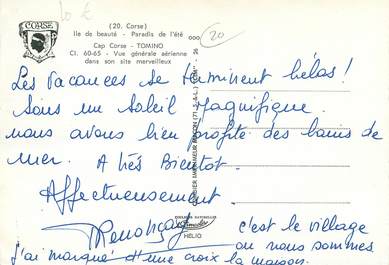 10 £
CORSE
(20. Corse)
Ile de beauté - Paradis de l'été
Cap Corse - TOMINO
Cl. 60-65 - Vue générale aérienne
dans son site merveilleux
20
Les vacances se terminent hélas !
Sous un soleil magnifique.
nous avons bien profité des bains de
mer. A très Bientôt.
Affectueusement
HELIO
c'est le village
où nous sommes
J'ai marqué d'une croix la maison.